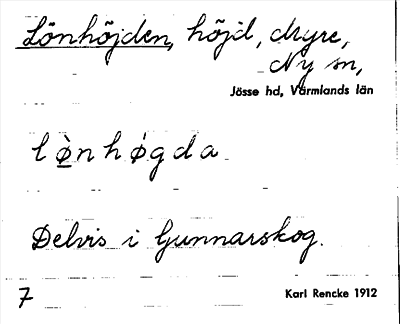 Lönhöjden, höjd, dryre,
Ny sn,
Jösse hd, Värmlands län
l ø̀ n h ǿ g d a
Delvis i Gunnarskog.
7
Karl Rencke 1912